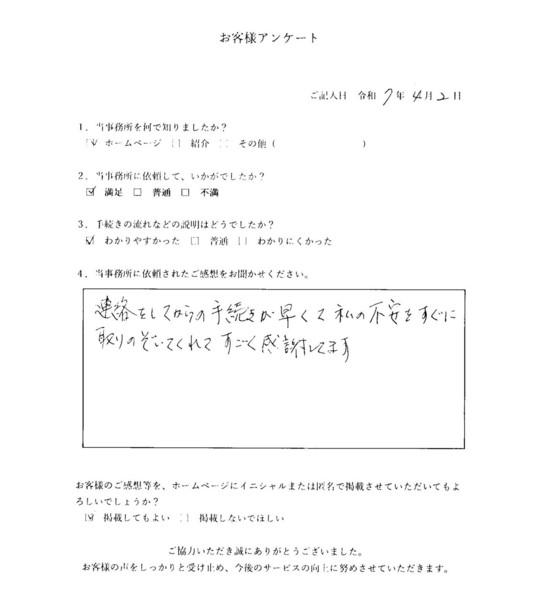 お客様アンケート
ご記入日 令和 7年 4月 2日
1．当事務所を何で知りましたか？
☑ ホームページ □ 紹介 □ その他（ ）
2．当事務所に依頼して、いかがでしたか？
☑ 満足 □ 普通 □ 不満
3．手続きの流れなどの説明はどうでしたか？
☑ わかりやすかった □ 普通 □ わかりにくかった
4．当事務所に依頼されたご感想をお聞かせください。
連絡をしてからの手続きが早くて私の不安をすぐに
取りのぞいてくれてすごく感謝してます
お客様のご感想等を、ホームページにイニシャルまたは匿名で掲載させていただいてもよ
ろしいでしょうか？
☑ 掲載してもよい □ 掲載しないでほしい
ご協力いただき誠にありがとうございました。
お客様の声をしっかりと受け止め、今後のサービスの向上に努めさせていただきます。